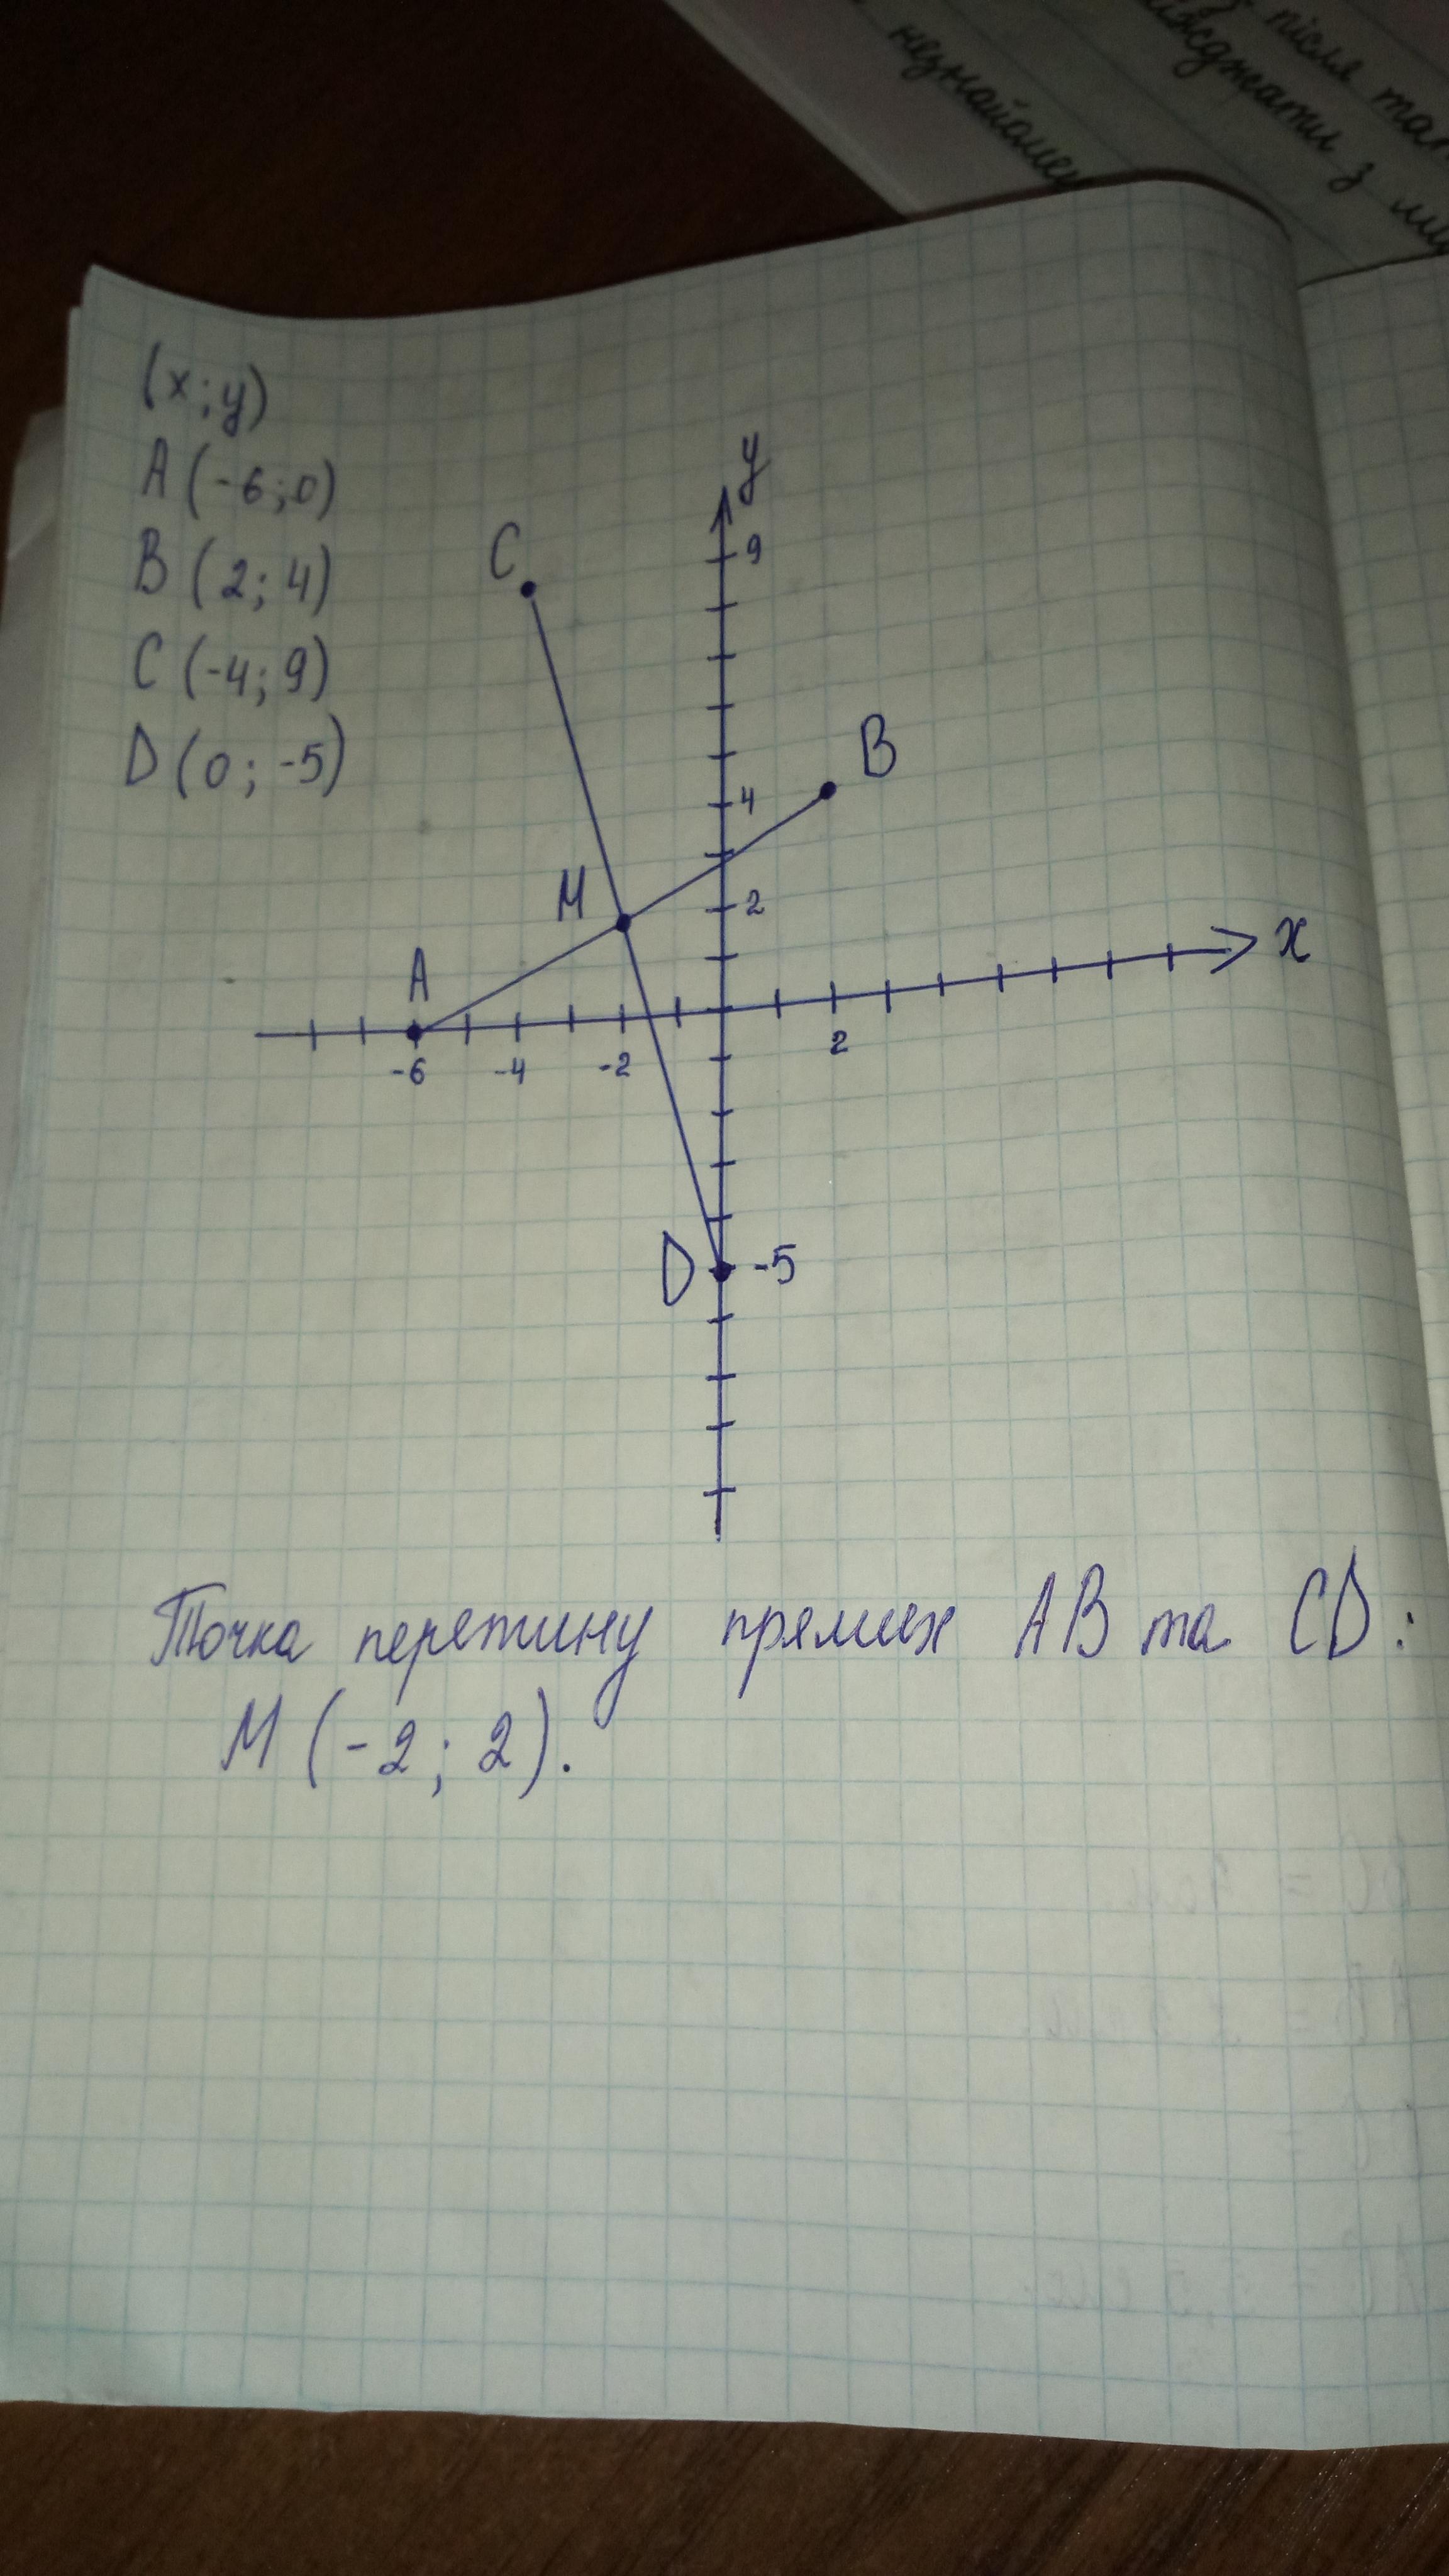 після
їжджати з
незнайомц
(x; y)
A (-6; 0)
B (2; 4)
C (-4; 9)
D (0; -5)
y
9
C
B
4
M
2
x
A
-6 -4 -2 2
D -5
Точка перетину прямих AB та CD:
M (-2; 2).